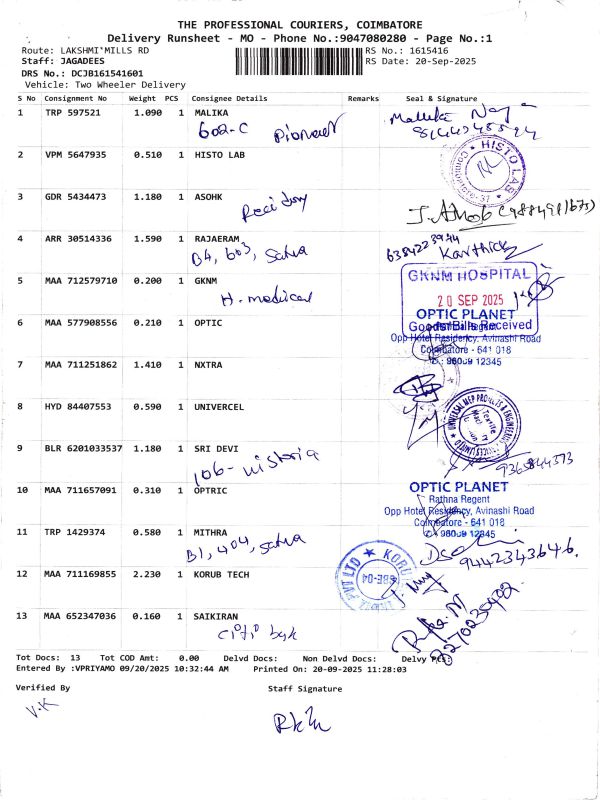 THE PROFESSIONAL COURIERS, COIMBATORE
Delivery Runsheet - MO - Phone No.:9047080280 - Page No.:1
Route: LAKSHMI MILLS RD RS No.: 1615416
Staff: JAGADEES RS Date: 20-Sep-2025
DRS No.: DCJB161541601
Vehicle: Two Wheeler Delivery
S No Consignment No Weight PCS Consignee Details Remarks Seal & Signature
1 TRP 597521 1.090 1 MALIKA
602-C Pioneer
2 VPM 5647935 0.510 1 HISTO LAB
HISTO LAB
3 GDR 5434473 1.180 1 ASOHK
4 ARR 30514336 1.590 1 RAJAERAM
B4, 603, Satva
6384223974
Karthick
5 MAA 712579710 0.200 1 GKNM
H. medical
GKNM HOSPITAL
20 SEP 2025
Goods/Bills Received
6 MAA 577908556 0.210 1 OPTIC
OPTIC PLANET
Opp Hotel Residency, Avinashi Road
Coimbatore - 641 018
7 MAA 711251862 1.410 1 NXTRA
8 HYD 84407553 0.590 1 UNIVERCEL
9 BLR 6201033537 1.180 1 SRI DEVI
9365844573
10 MAA 711657091 0.310 1 OPTRIC
OPTIC PLANET
Rathna Regent
Opp Hotel Residency, Avinashi Road
Coimbatore - 641 018
11 TRP 1429374 0.580 1 MITHRA
B1, 404, Satva
9442343646.
12 MAA 711169855 2.230 1 KORUB TECH
13 MAA 652347036 0.160 1 SAIKIRAN
Tot Docs: 13 Tot COD Amt: 0.00 Delvd Docs: Non Delvd Docs: Delvy PCS:
Entered By :VPRIYAMO 09/20/2025 10:32:44 AM Printed On: 20-09-2025 11:28:03
Verified By Staff Signature
V.K